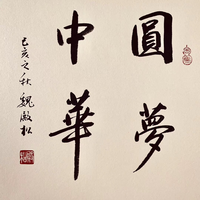 圓夢
中華
己亥之秋魏啟松